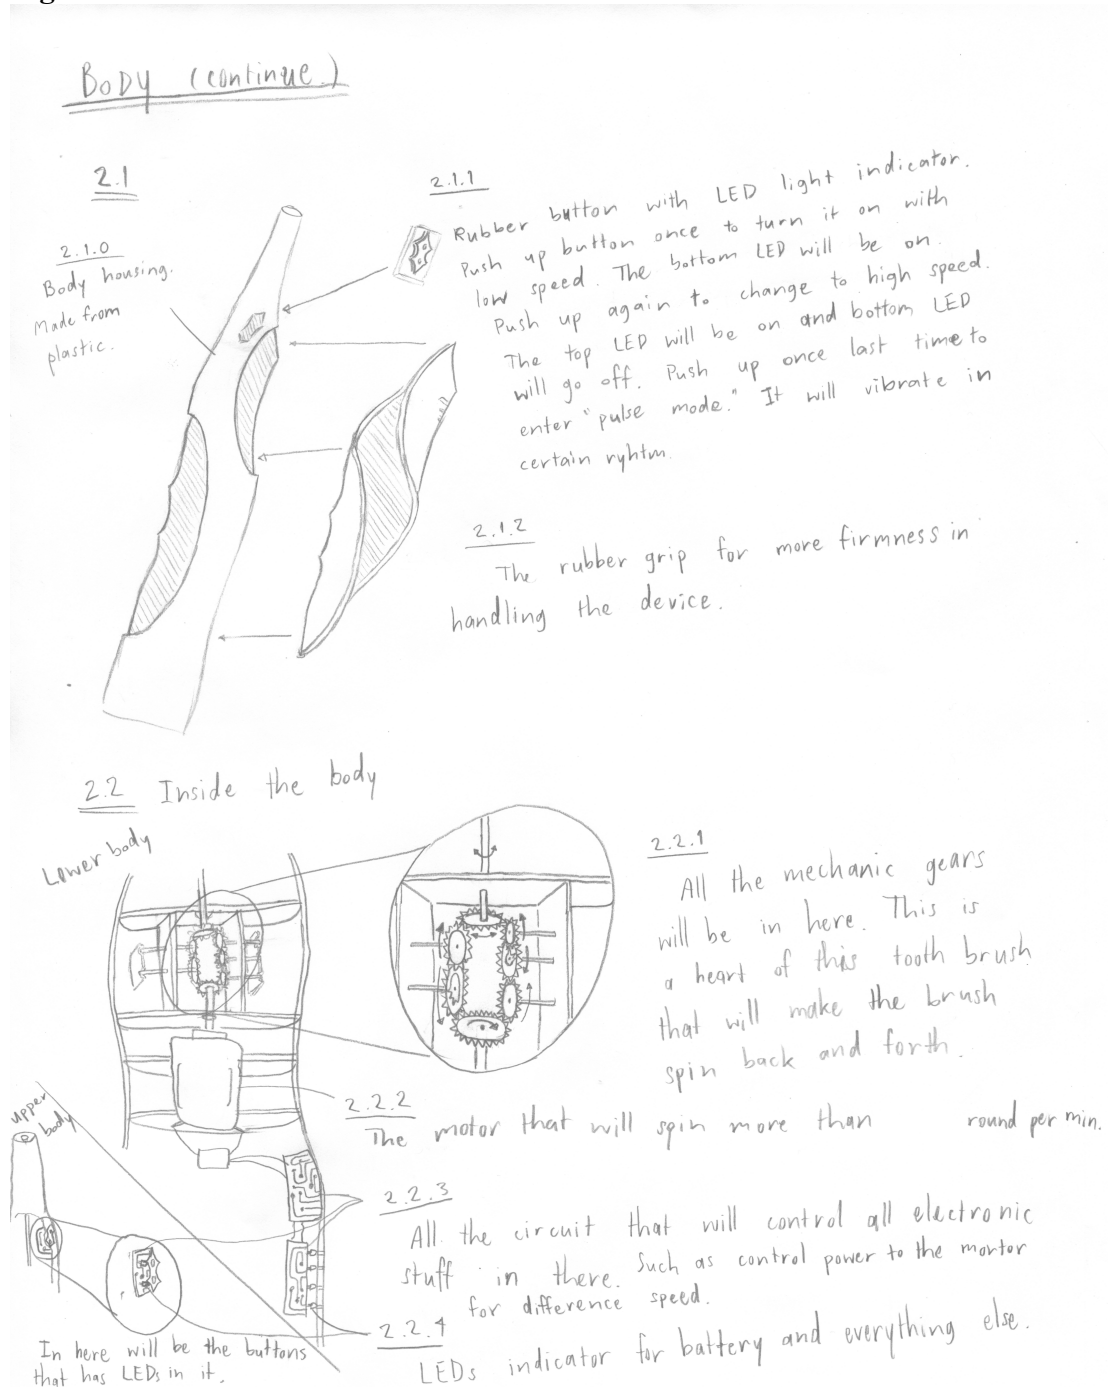 BODY (continue)
2.1
2.1.0
Body housing.
Made from
plastic.
2.1.1
Rubber button with LED light indicator.
Push up button once to turn it on with
low speed. The bottom LED will be on.
Push up again to change to high speed.
The top LED will be on and bottom LED
will go off. Push up once last time to
enter "pulse mode." It will vibrate in
certain ryhtm.
2.1.2
The rubber grip for more firmness in
handling the device.
2.2 Inside the body
Lower body
2.2.1
All the mechanic gears
will be in here. This is
a heart of this tooth brush
that will make the brush
spin back and forth.
2.2.2
The motor that will spin more than round per min.
upper
body
2.2.3
All the circuit that will control all electronic
stuff in there. Such as control power to the mortor
for difference speed.
2.2.4
LEDs indicator for battery and everything else.
In here will be the buttons
that has LEDs in it.